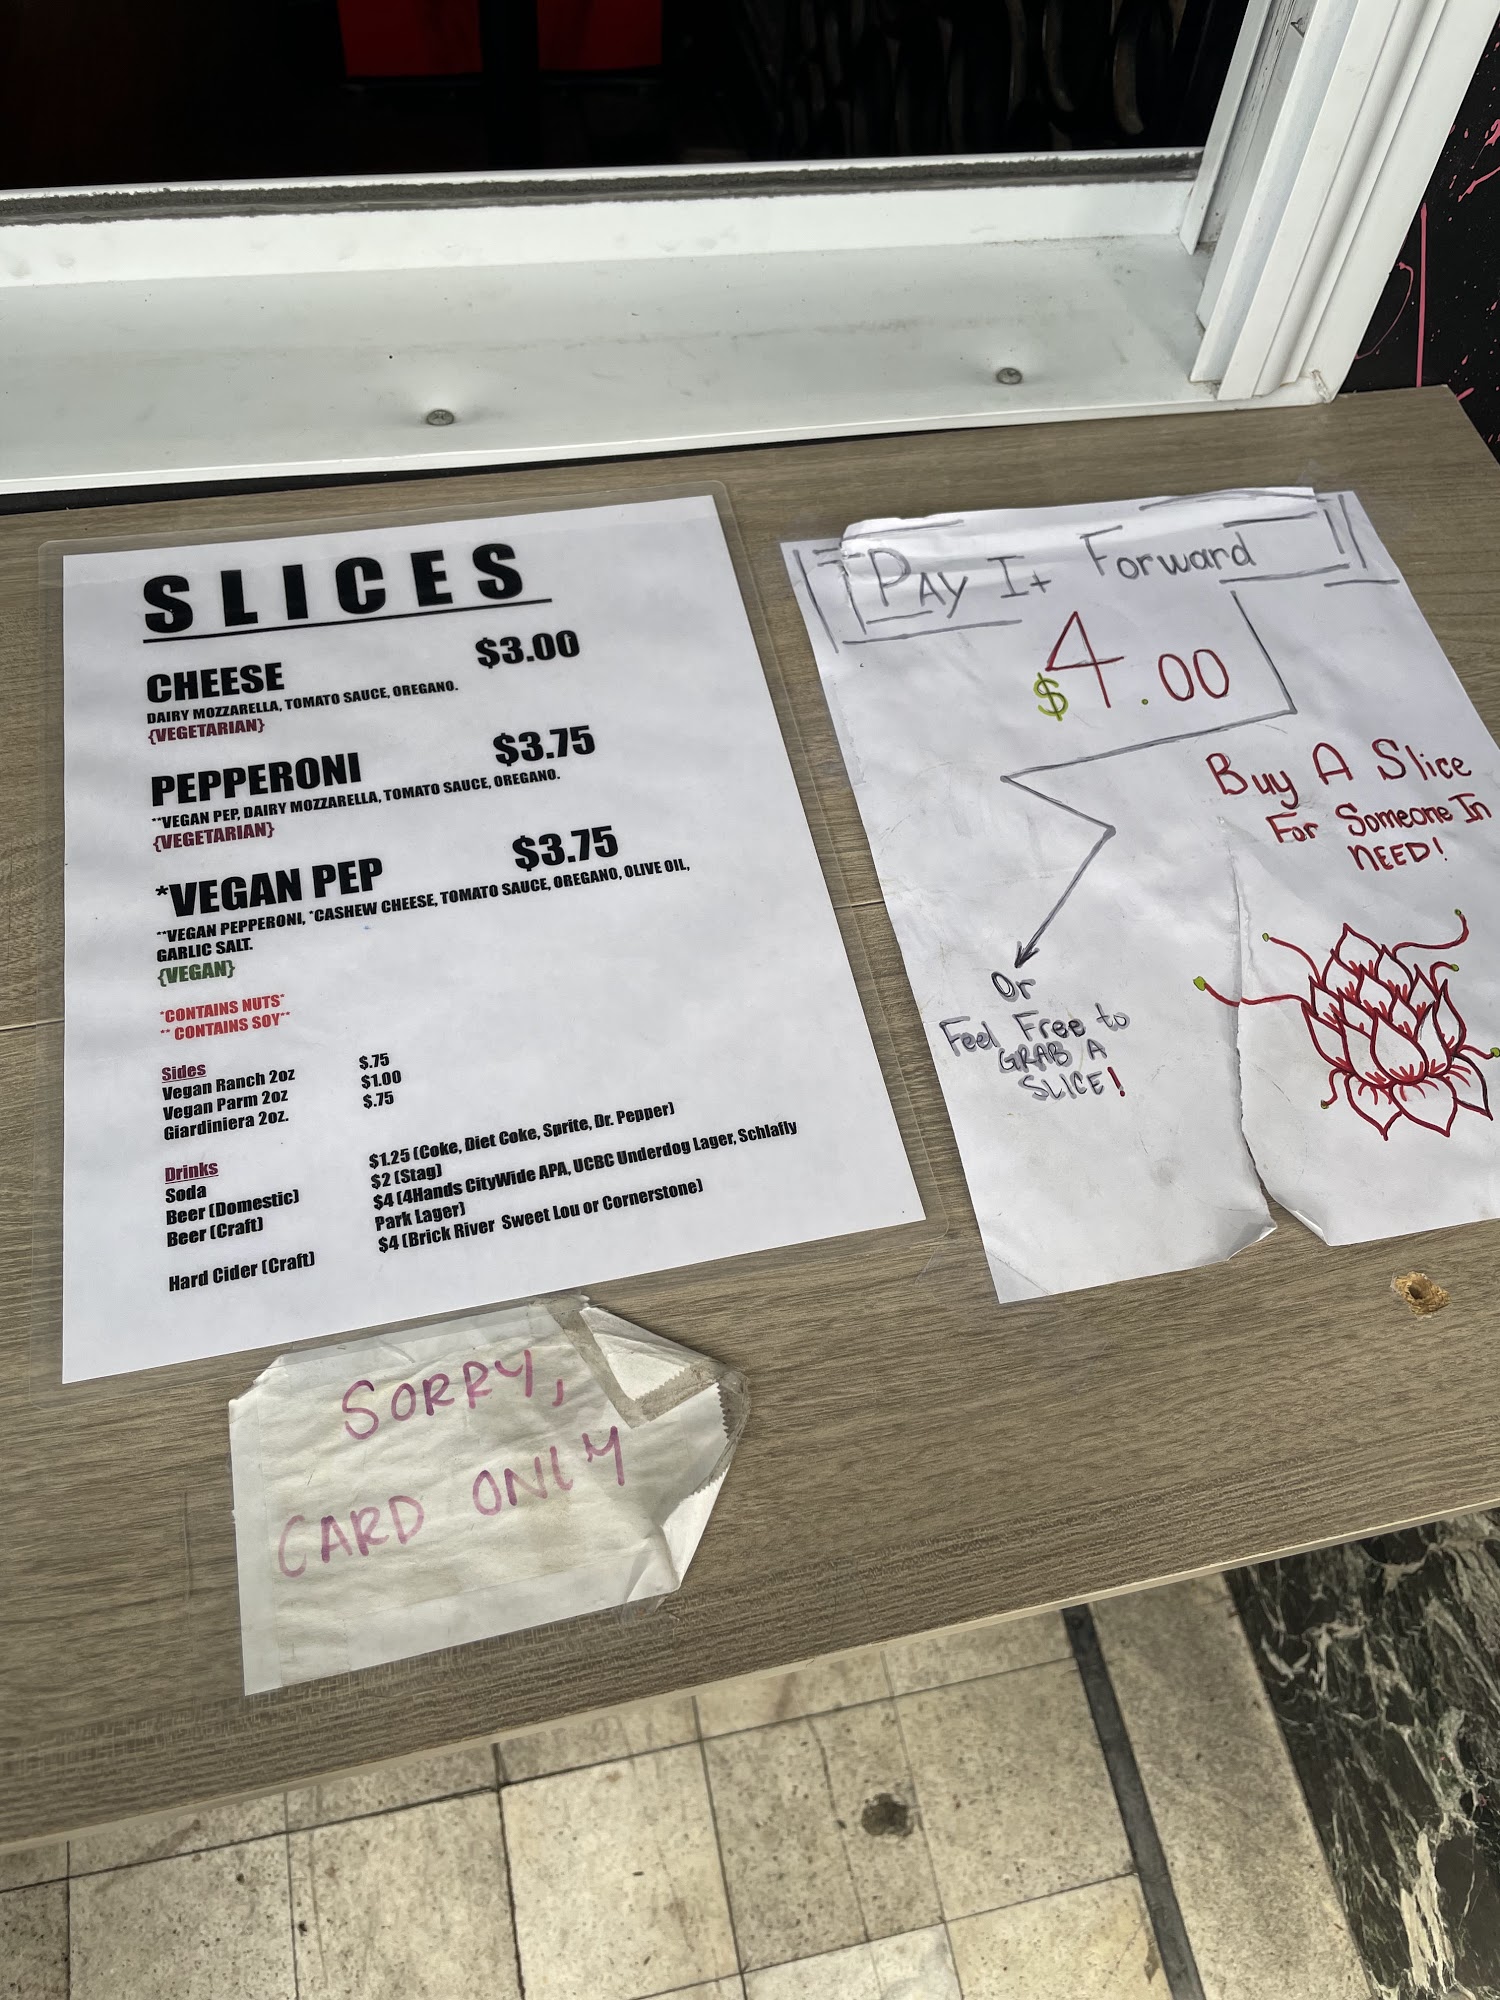 SLICES
CHEESE $3.00
DAIRY MOZZARELLA, TOMATO SAUCE, OREGANO.
{VEGETARIAN}
PEPPERONI $3.75
**VEGAN PEP, DAIRY MOZZARELLA, TOMATO SAUCE, OREGANO.
{VEGETARIAN}
*VEGAN PEP $3.75
**VEGAN PEPPERONI, *CASHEW CHEESE, TOMATO SAUCE, OREGANO, OLIVE OIL,
GARLIC SALT.
{VEGAN}
*CONTAINS NUTS*
** CONTAINS SOY**
Sides
Vegan Ranch 2oz $.75
Vegan Parm 2oz $1.00
Giardiniera 2oz. $.75
Drinks
Soda $1.25 (Coke, Diet Coke, Sprite, Dr. Pepper)
Beer (Domestic) $2 (Stag)
Beer (Craft) $4 (4Hands CityWide APA, UCBC Underdog Lager, Schlafly
Park Lager)
Hard Cider (Craft) $4 (Brick River Sweet Lou or Cornerstone)
SORRY,
CARD ONLY
PAY It Forward
$4.00
Buy A Slice
For Someone In
NEED!
Or
Feel Free to
GRAB A
SLICE!